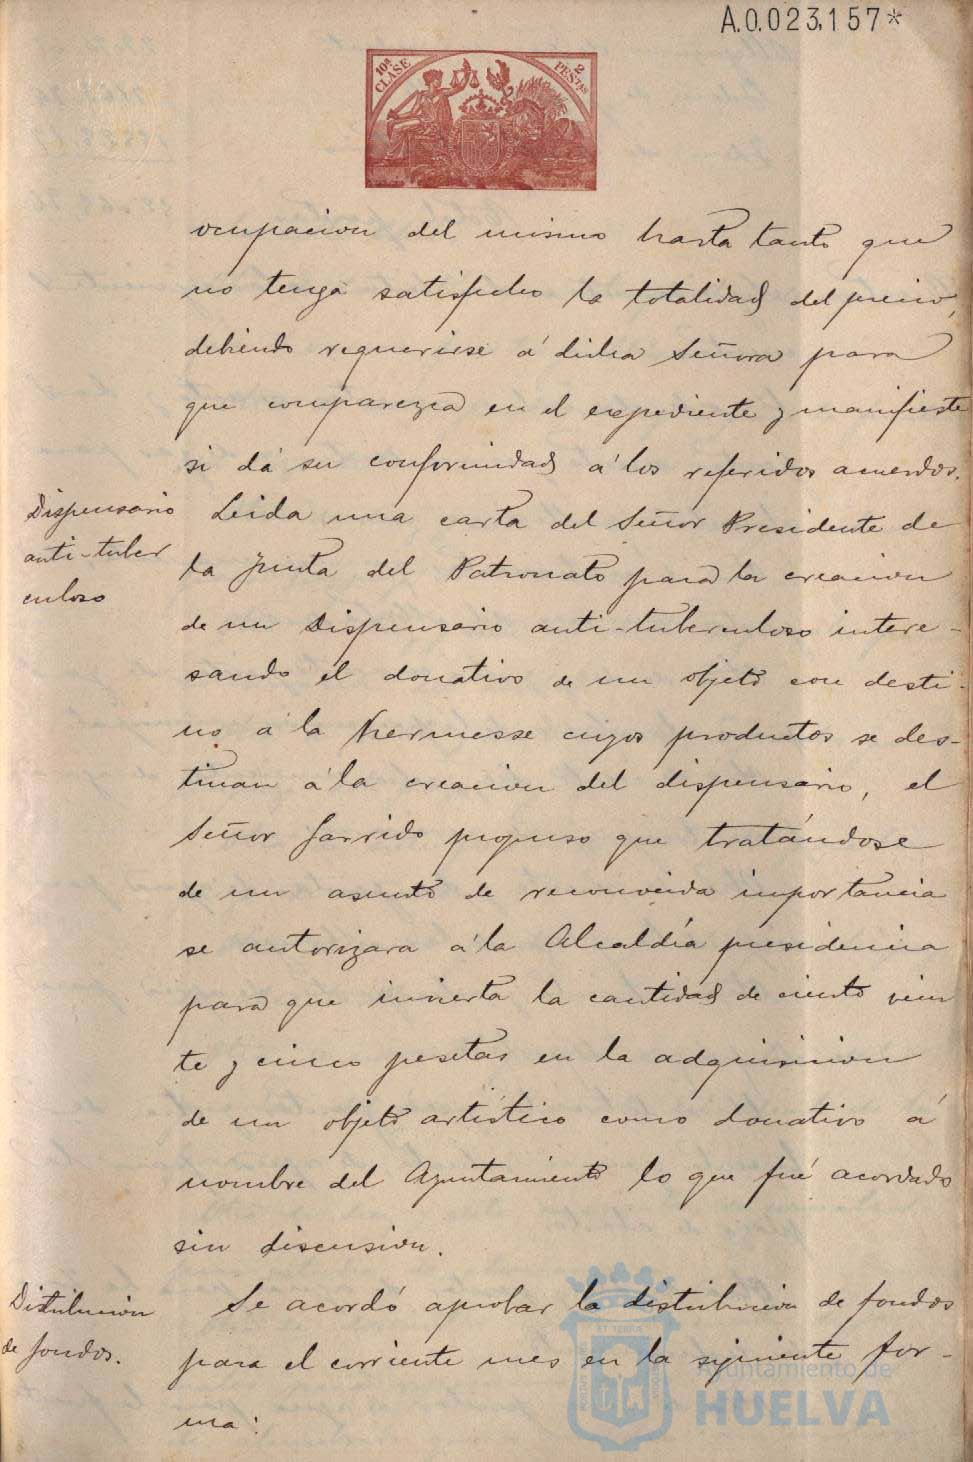 A.0.023,157*
10ª CLASE
2 PESTAS
ocupacion del mismo hasta tanto que
no tenga satisfecho la totalidad del precio,
debiendo requerirse á dicha Señora para
que comparezca en el expediente y manifieste
si dá su conformidad á los referidos acuerdos.
Dispensario
anti-tuber
culoso
Leida una carta del Señor Presidente de
la Junta del Patronato para la creacion
de un Dispensario anti-tuberculoso intere-
sando el donativo de un objeto con desti-
no á la Kermesse cuyos productos se des-
tinan á la creacion del dispensario, el
Señor Garrido propuso que tratándose
de un asunto de reconocida importancia
se autorizara á la Alcaldía presidencia
para que invierta la cantidad de ciento vein
te y cinco pesetas en la adquisicion
de un objeto artístico como donativo á
nombre del Ayuntamiento lo que fué acordado
sin discusion.
Distribucion
de fondos.
Se acordó aprobar la distribucion de fondos
para el corriente mes en la siguiente for-
ma:
Ayuntamiento de
HUELVA